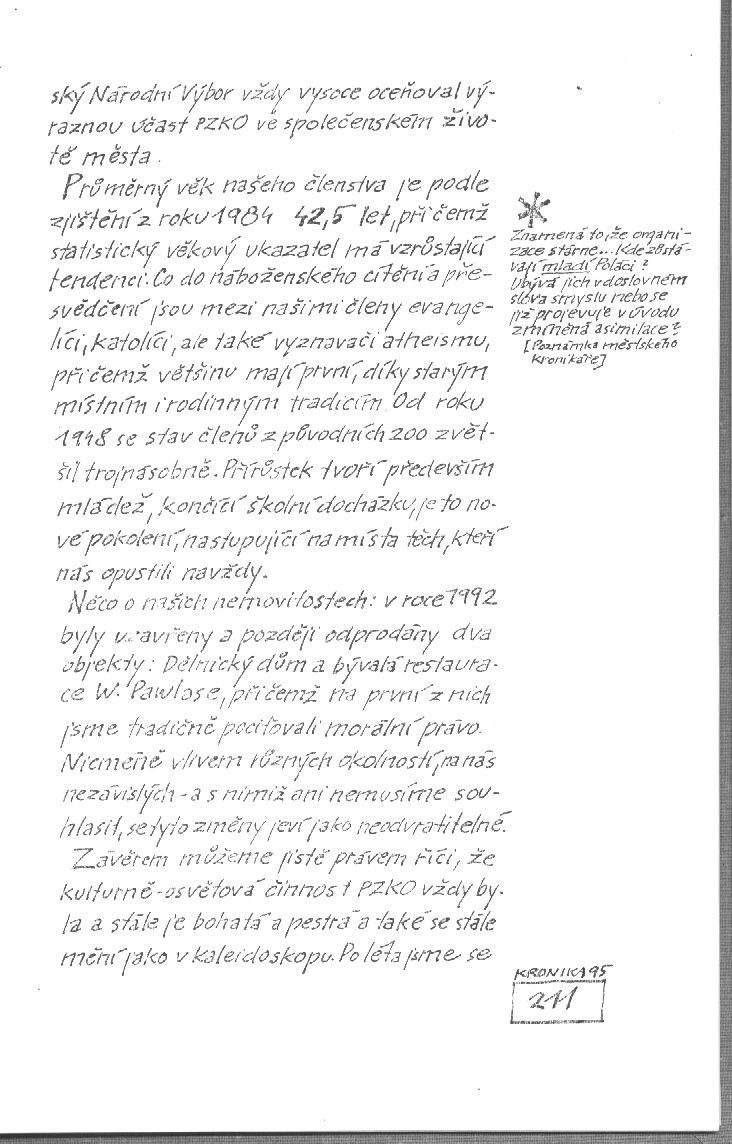 ský Národní Výbor vždy vysoce oceňoval vý-
raznou účast PZKO ve společenském živo-
tě města.
Průměrný věk našeho členstva je podle
zjištění z roku 1984 42,5 let, přičemž
statistický věkový ukazatel má vzrůstající
tendenci. Co do náboženského cítění a pře-
svědčení jsou mezi našimi členy evange-
líci, katolíci, ale také vyznavači atheismu,
přičemž většinu mají první, díky starým
místním i rodinným tradicím. Od roku
1948 se stav členů z původních 200 zvět-
šil trojnásobně. Přírůstek tvoří především
mládež, končící školní docházku, je to no-
vé pokolení, nastupující na místa těch, kteří
nás opustili navždy.
Něco o našich nemovitostech: v roce 1992
byly uzavřeny a později odprodány dva
objekty: Dělnický dům a bývalá restaura-
ce W. Pawlase, přičemž na první z nich
jsme tradičně pociťovali morální právo.
Nicméně vlivem různých okolností, na nás
nezávislých - a s nimiž ani nemusíme sou-
hlasit, se tyto změny jeví jako neodvratitelné.
Závěrem můžeme jistě právem říci, že
kulturně-osvětová činnost PZKO vždy by-
la a stále je bohatá a pestrá a také se stále
mění jako v kaleidoskopu. Po léta jsme se
*
Znamená to, že organi-
zace stárne... Kde zůstá-
vají mladí Poláci?
Ubývá jich v doslovném
slova smyslu nebo se
již projevuje v úvodu
zmíněná asimilace?
[Poznámka městského
kronikáře]
KRONIKA 95
211